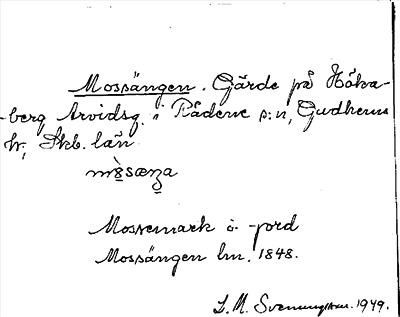 Mossängen. Gärde på Höka-
-berg Arvidsg. i Rådene s:n, Gudhems
hr, Skb. län
Mossemark o. -jord
Mossängen lm. 1848.
1949.